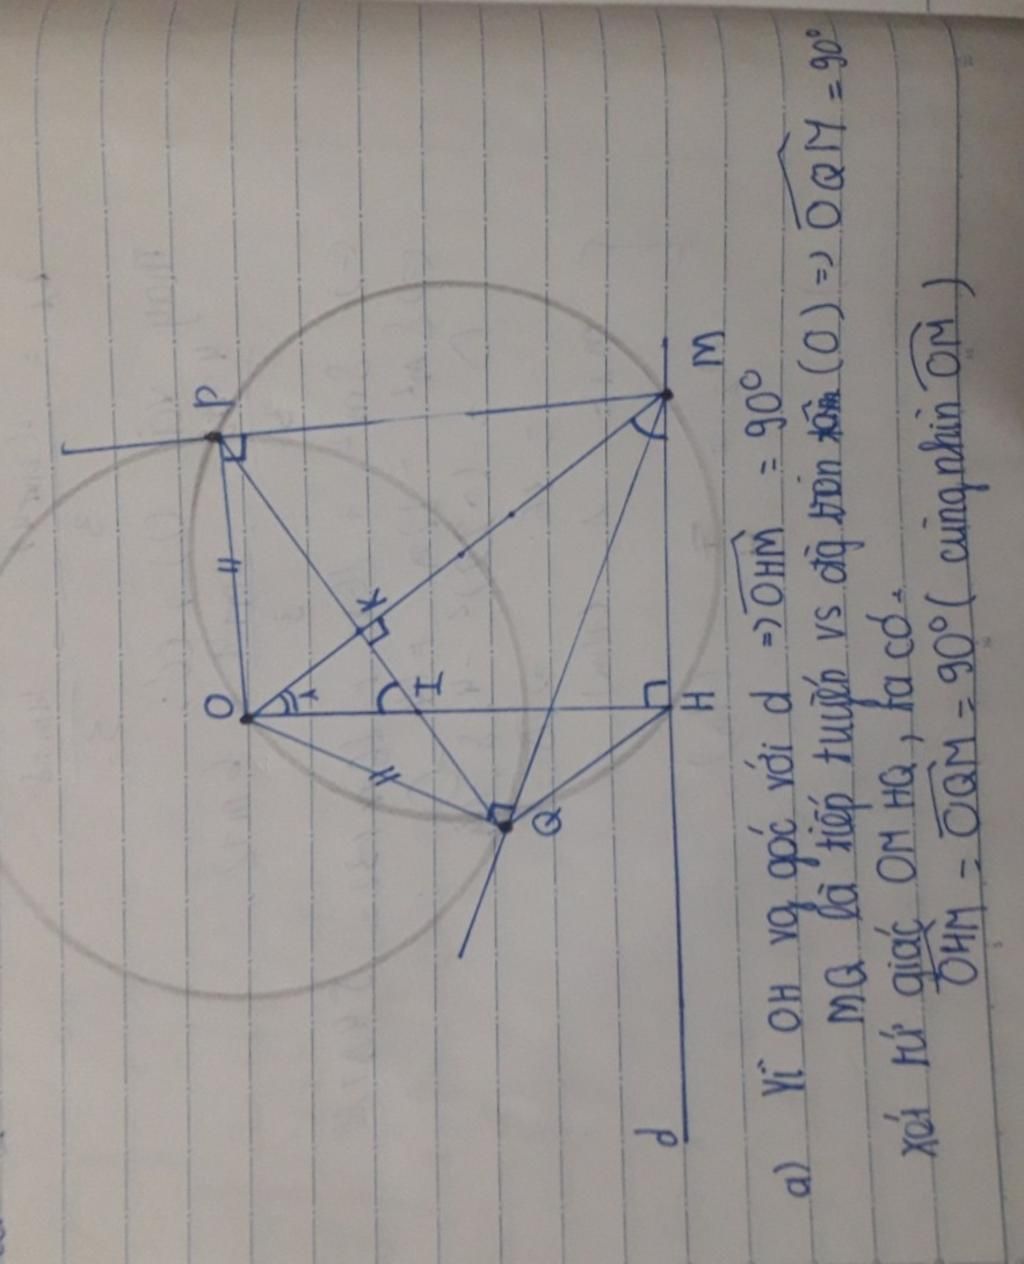 O
P
K
I
Q
H
M
d
a) Vì OH vg góc với d => OHM = 90°
MQ là tiếp tuyến vs đg tròn tâm (O) => OQM = 90°
Xét tứ giác OMHQ, ta có:
OHM = OQM = 90° (cùng nhìn OM)